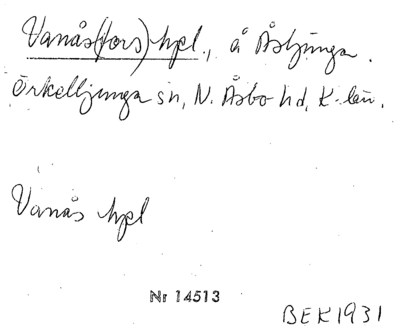 Vanås(fors) hpl., å Åsljunga.
Örkelljunga sn, N. Åsbo hd, K. län.
Vanås hpl
Nr 14513
BEK1931